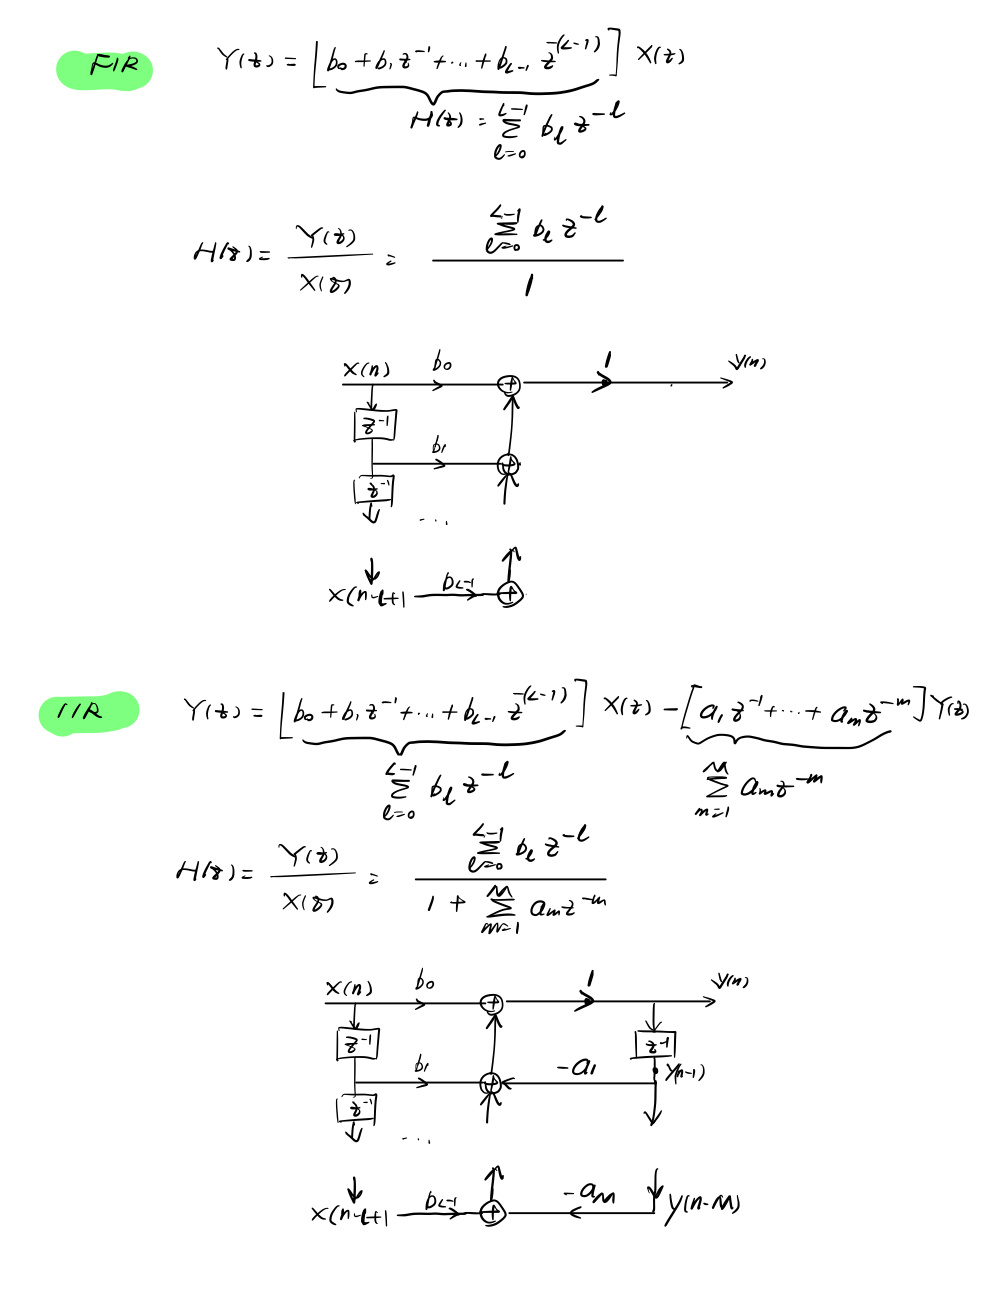 FIR Y(z) = [b₀ + b₁ z⁻¹ + ... + b_{L-1} z^{-(L-1)}] X(z)
H(z) = Σ_{l=0}^{L-1} b_l z^{-l}
H(z) = Y(z) / X(z) = Σ_{l=0}^{L-1} b_l z^{-l} / 1
X(n) b₀ 1 y(n)
z⁻¹
b₁
z⁻¹
...
X(n-L+1 b_{L-1}
IIR Y(z) = [b₀ + b₁ z⁻¹ + ... + b_{L-1} z^{-(L-1)}] X(z) - [a₁ z⁻¹ + ... + a_m z^{-m}] Y(z)
Σ_{l=0}^{L-1} b_l z^{-l} Σ_{m=1}^{M} a_m z^{-m}
H(z) = Y(z) / X(z) = Σ_{l=0}^{L-1} b_l z^{-l} / 1 + Σ_{m=1}^{M} a_m z^{-m}
X(n) b₀ 1 y(n)
z⁻¹ z⁻¹
b₁ -a₁ y(n-1)
z⁻¹
...
X(n-L+1 b_{L-1} -a_M y(n-M)